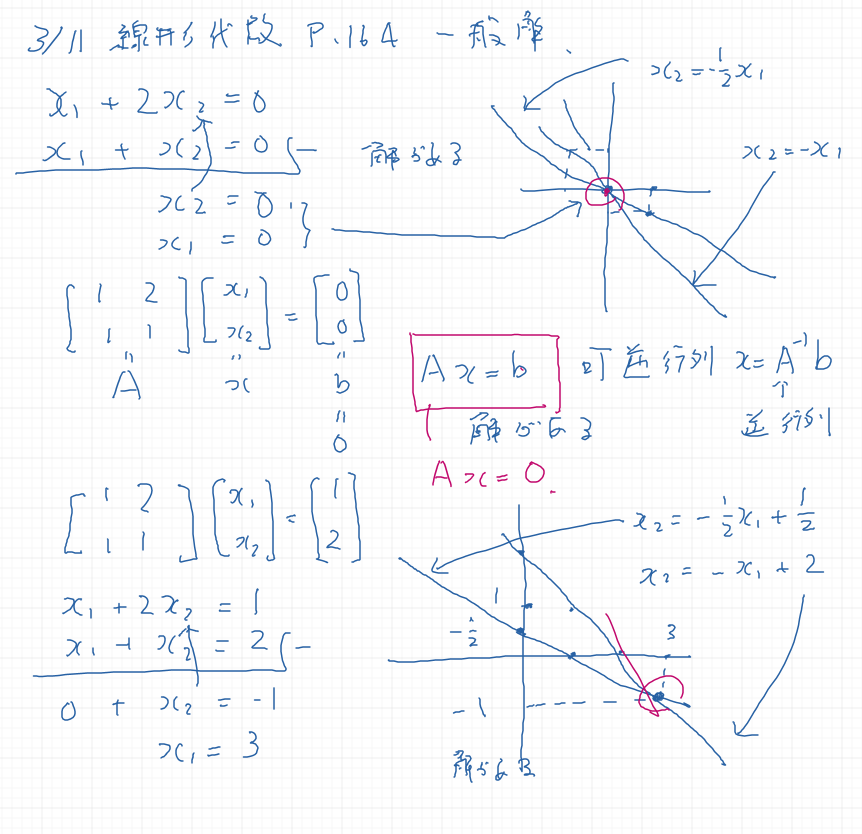 3/11 線形代数 P.164 一般解.
x₁ + 2x₂ = 0
x₁ + x₂ = 0 (−
x₂ = 0
x₁ = 0
解がある
x₂ = -1/2 x₁
x₂ = -x₁
[1 2; 1 1] [x₁; x₂] = [0; 0]
" " "
A x b
"
0
Ax = b 可逆行列 x = A⁻¹b
↑
解がある 逆行列
Ax = 0.
[1 2; 1 1] [x₁; x₂] = [1; 2]
x₁ + 2x₂ = 1
x₁ + x₂ = 2 (−
0 + x₂ = -1
x₁ = 3
x₂ = -1/2 x₁ + 1/2
x₂ = -x₁ + 2
1
-1/2
3
-1
解がある